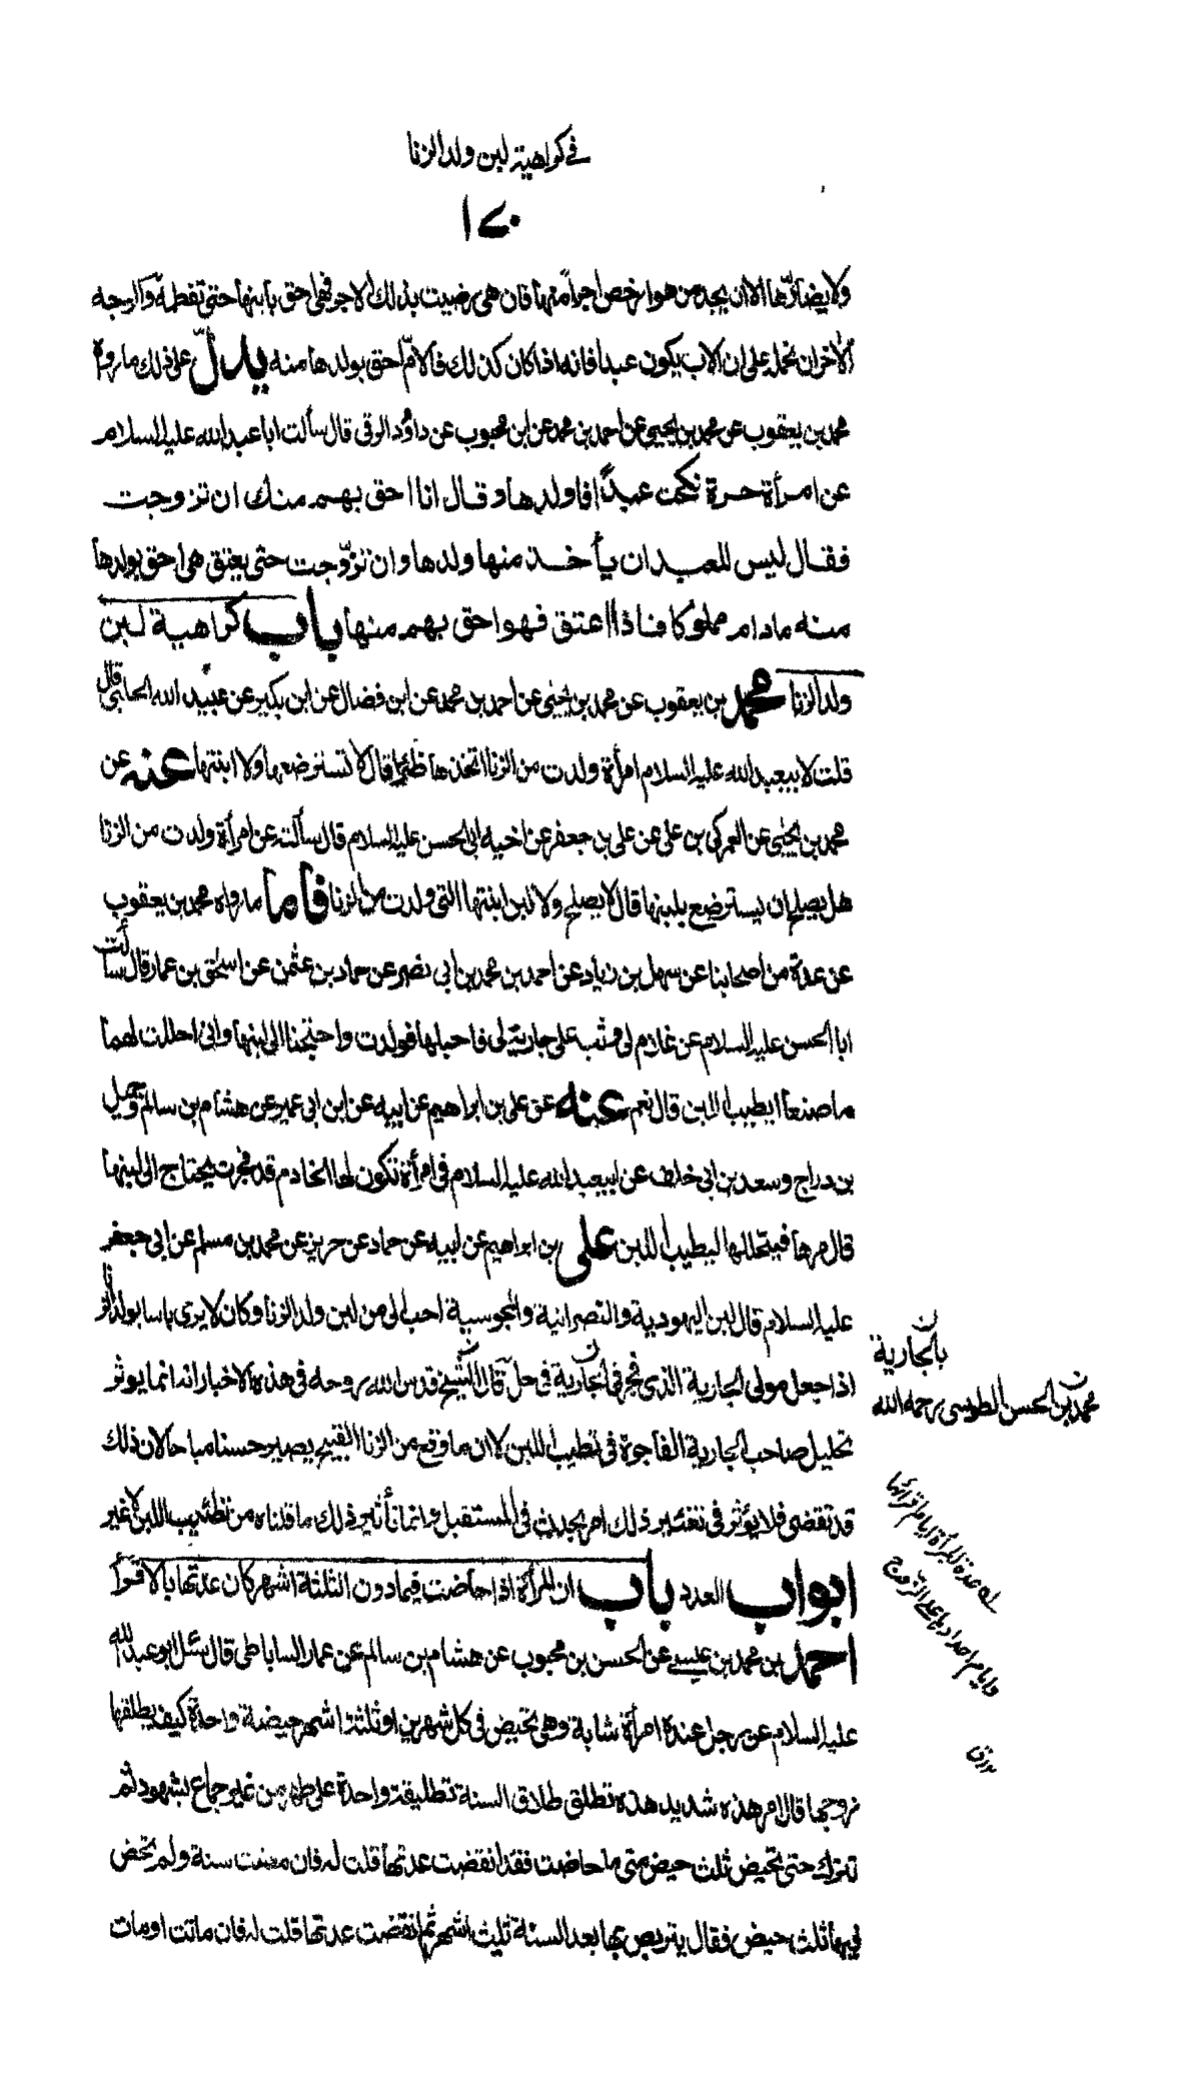 في كراهية لبن ولد الزنا
١٧٠
ولا يضارّها الا ان يجد من هو ارخص اجراً منها فان هي رضيت بذلك الاجر فهي احق بابنها حتى تفطمه والوجه
الاخر ان نحمله على ان الاب يكون عبدا فانه اذا كان كذلك فالامّ احق بولدها منه يدلّ على ذلك ما رواه
محمد بن يعقوب عن محمد بن يحيى عن احمد بن محمد عن ابن محبوب عن داؤد الرقي قال سألت ابا عبد الله عليه السلام
عن امرأة حرة نكحت عبداً فاولدها وقال انا احق بهم منك ان تزوجت
فقال ليس للعبد ان يأخذ منها ولدها وان تزوّجت حتى يعتق هي احق بولدها
منه ما دام مملوكا فاذا اعتق فهو احق بهم منها باب كراهية لبن
ولد الزنا محمد بن يعقوب عن محمد بن يحيى عن احمد بن محمد عن ابن فضال عن ابن بكير عن عبيد الله الحلبي قال
قلت لابيعبد الله عليه السلام امرأة ولدت من الزنا اتخذها ظئرا قال لا تسترضعها ولا ابنتها عنه عن
محمد بن يحيى عن العمركي بن علي عن علي بن جعفر عن اخيه ابي الحسن عليه السلام قال سألته عن امرأة ولدت من الزنا
هل يصلح ان يسترضع بلبنها قال لا يصلح ولا لبن ابنتها التي ولدت من الزنا فاما ما رواه محمد بن يعقوب
عن عدة من اصحابنا عن سهل بن زياد عن احمد بن محمد بن ابي نصر عن حماد بن عثمن عن اسحق بن عمار قال سألت
ابا الحسن عليه السلام عن غلام لي وثب على جارية لي فاحبلها فولدت واحتجنا الى لبنها واني احللت لهما
ما صنعا ايطيب اللبن قال نعم عنه عن علي بن ابراهيم عن ابيه عن ابن ابي عمير عن هشام بن سالم وجميل
بن دراج وسعد بن ابي خلف عن ابيعبد الله عليه السلام في امرأة تكون لها الخادم قد فجرت يحتاج الى لبنها
قال مرها فيتحللها ليطيب اللبن علي بن ابراهيم عن ابيه عن حماد عن حريز عن محمد بن مسلم عن ابي جعفر
عليه السلام قال لبن اليهودية والنصرانية والمجوسية احب الي من لبن ولد الزنا وكان لا يرى باسا بولد الزنا
اذا جعل مولى الجارية الذي فجر في الجارية في حل قال الشيخ قدس الله روحه في هذه الاخبار انه انما يوثر
تحليل صاحب الجارية الفاجرة في تطييب اللبن لا ان ما وقع من الزنا القبيح يصير حسنا مباحا لان ذلك
قد تقضى فلا يؤثر في تغئير ذلك امر يحدث في المستقبل وانما تأثير ذلك ما قلناه من تطئيب اللبن لا غير
ابواب العدد باب ان المرأة اذا حاضت فيما دون الثلثة اشهر كان عدتها بالاقرأ
احمد بن محمد بن عيسى عن الحسن بن محبوب عن هشام بن سالم عن عمار الساباطي قال سئل ابو عبد الله
عليه السلام عن رجل عنده امرأة شابة وهي تحيض في كل شهرين او ثلثة اشهر حيضة واحدة كيف يطلقها
زوجها قال امر هذه شديد هذه تطلق طلاق السنة تطليقة واحدة على طهر من غير جماع بشهود ثم
تترك حتى تحيض ثلث حيض متى ما حاضت فقد انقضت عدتها قلت له فان مضت سنة ولم تحض
فيها ثلث حيض فقال يتربص بها بعد السنة ثلث اشهر ثم انقضت عدتها قلت له فان ماتت او مات
ن
بالجارية
ن
محمد بن الحسن الطوسي رحمه الله
عدة المرأة ايام اقرائها
وايام احدادها على الزوج